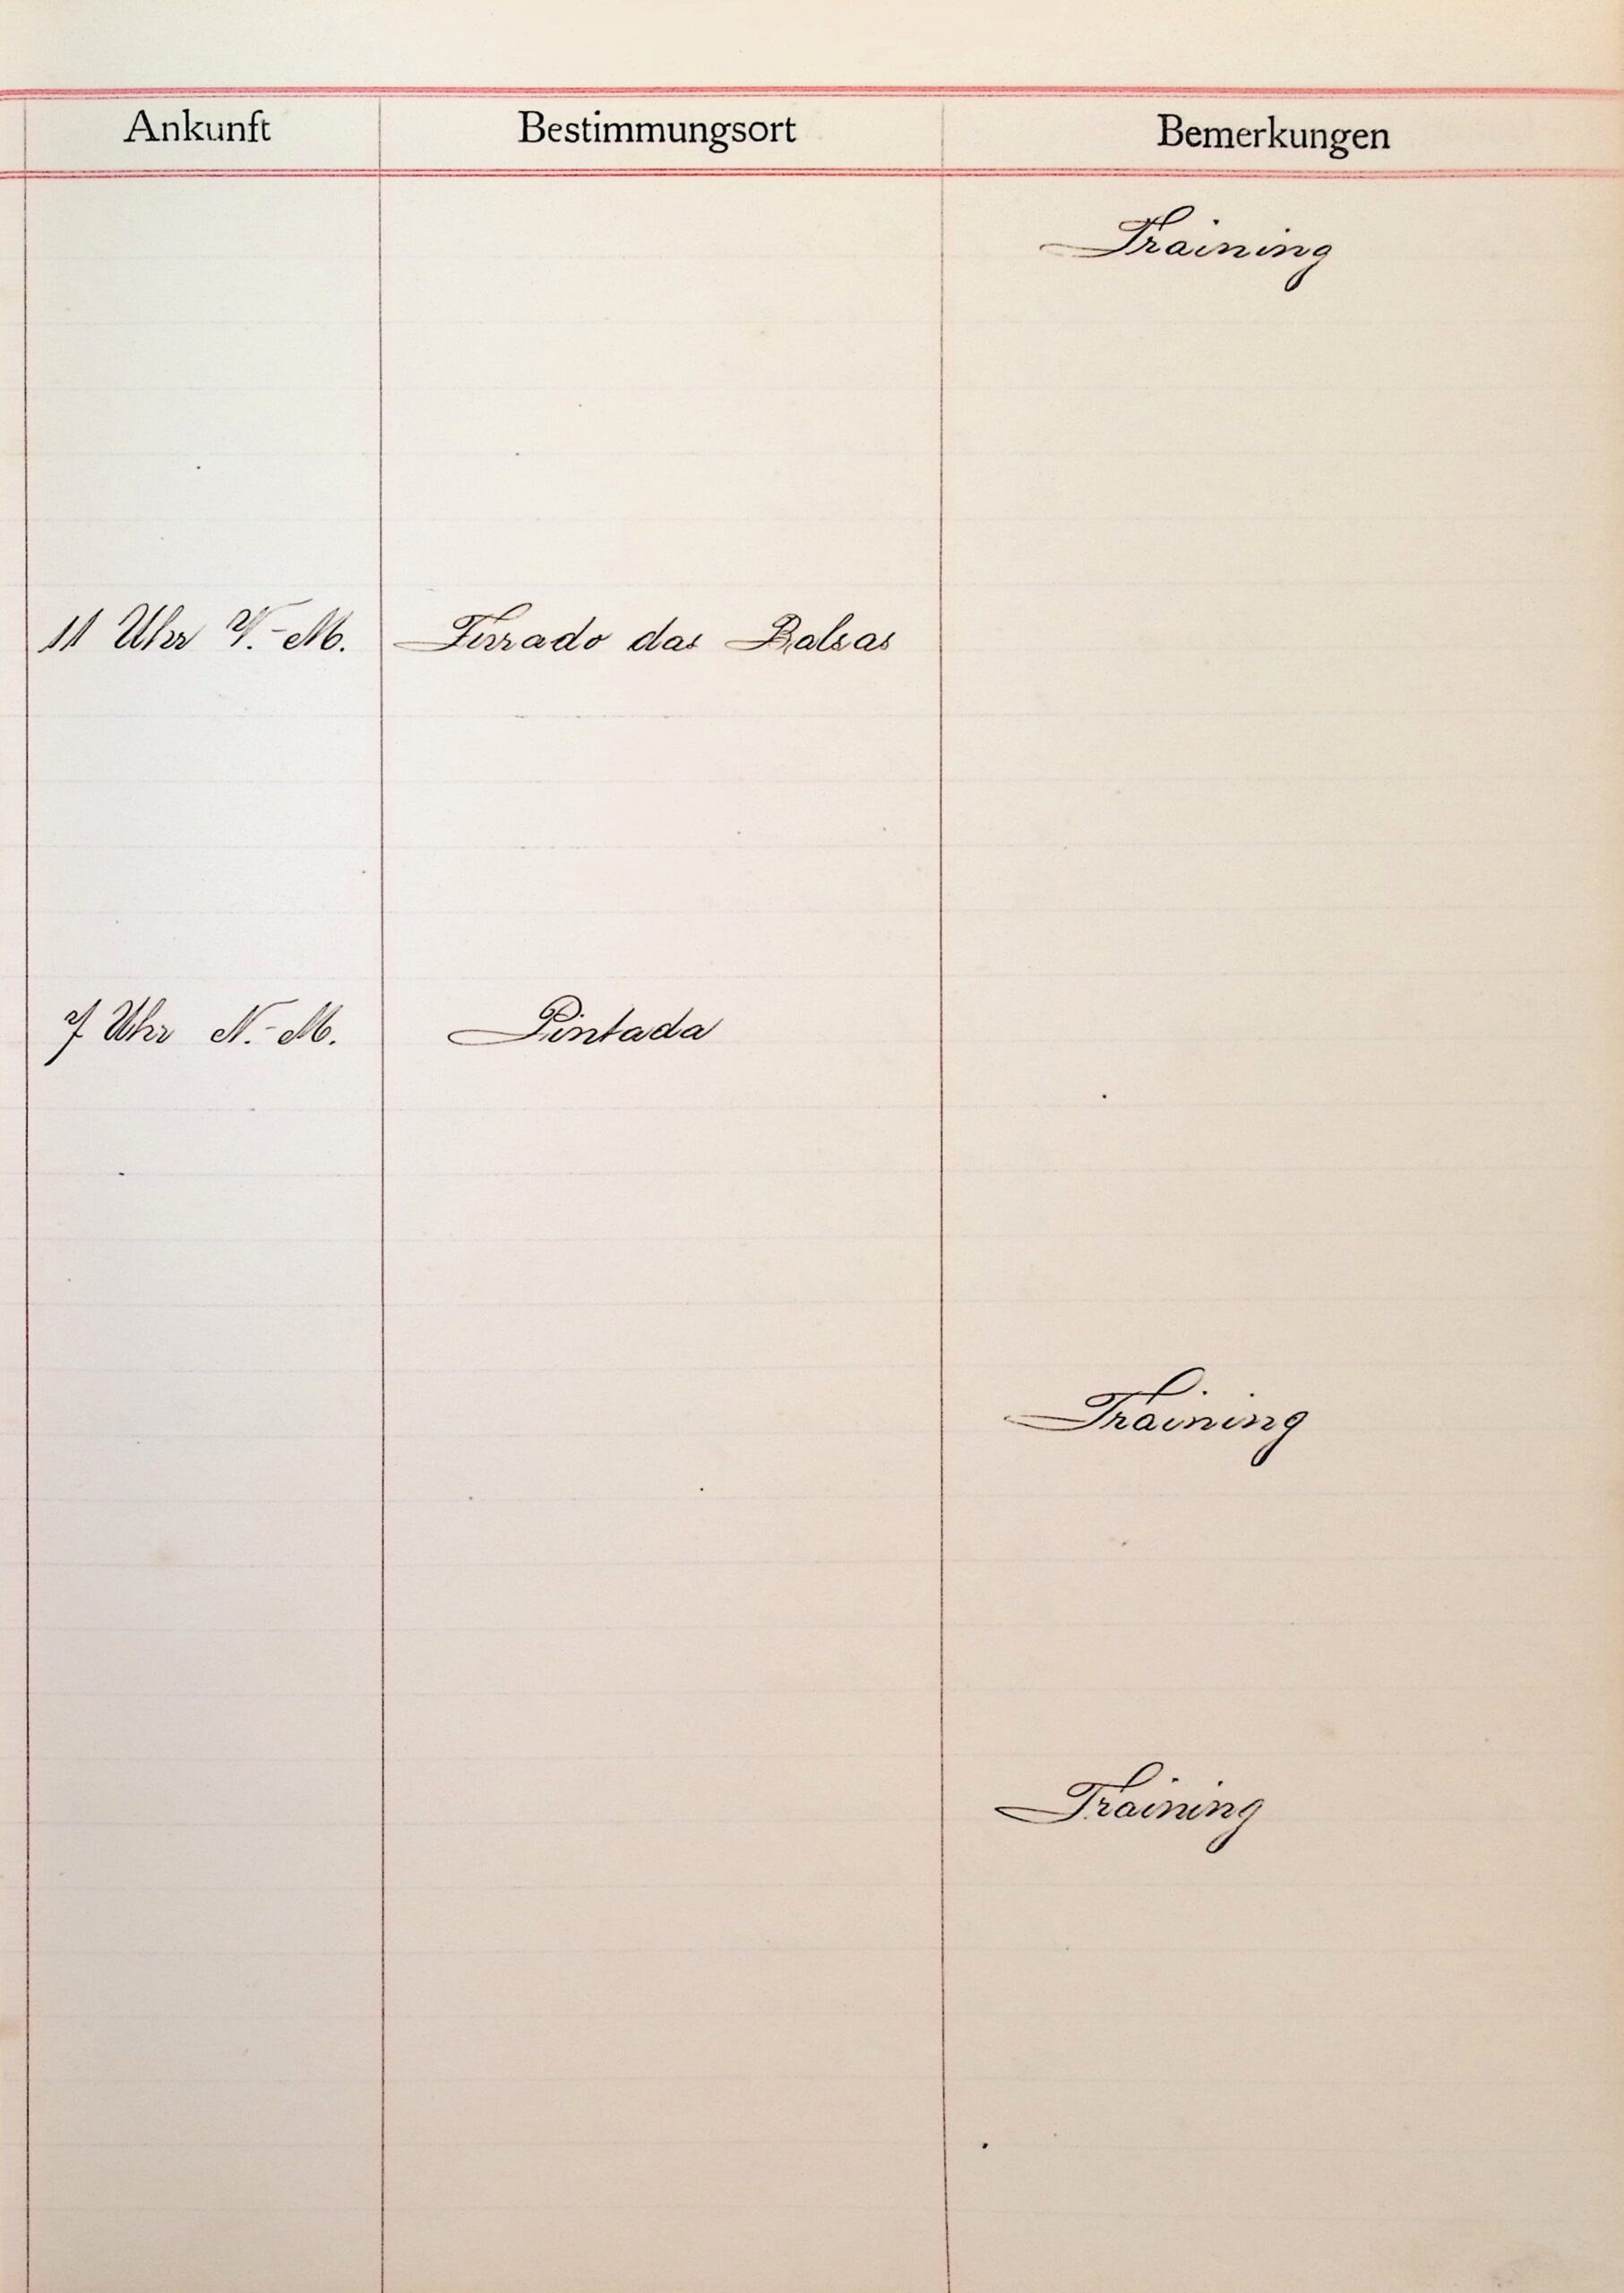 Ankunft Bestimmungsort Bemerkungen
Training
11 Uhr V.-M. Furado das Balsas
7 Uhr N.-M. Pintada
Training
Training